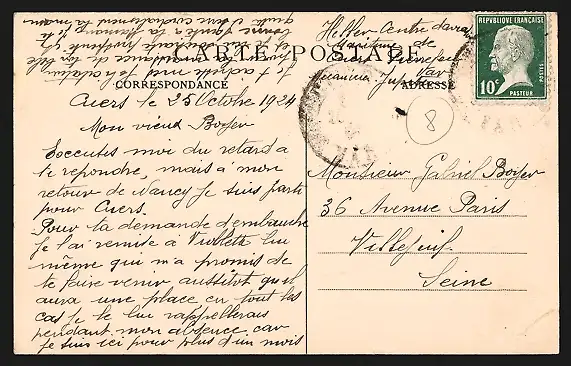 CARTE POSTALE
CORRESPONDANCE
ADRESSE
REPUBLIQUE FRANÇAISE
10c
POSTES
PASTEUR
8
Helfer Centre d'aviation
Maritime de
Cuers Pierrefeu
Var
Cuers le 25 Octobre 1924
Mon vieux Boyer
Excuses moi du retard a
te répondre, mais a mon
retour de Nancy je suis parti
pour Cuers.
Pour la demande d'embauche
je l'ai remise a Viollette lui
même qui m'a promis de
te faire venir aussitôt qu'il
aura une place en tout les
cas je te lui rappellerais
pendant mon absence car
je suis ici pour plus d'un mois
Monsieur Gabriel Boyer
36 Avenue Paris
Villejuif
Seine